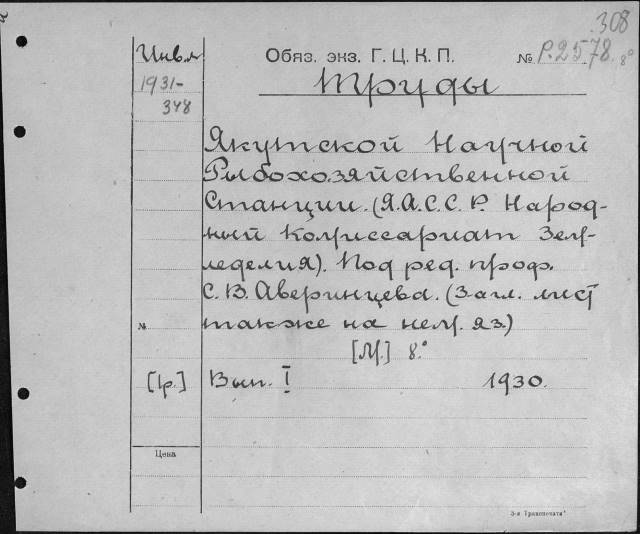 308
Инв.
1931-
348
Обяз. экз. Г. Ц. К. П.
№ Р.2578. 8°
Труды
Якутской Научной
Рыбохозяйственной
Станции. (Я.А.С.С.Р. Народ-
ный Комиссариат Зем-
леделия). Под ред. проф.
С. В. Аверинцева. (Загл. лист
№
также на нем. яз.)
[М.] 8°
[1р.] Вып. I 1930.
Цена
3-я Транспечати"